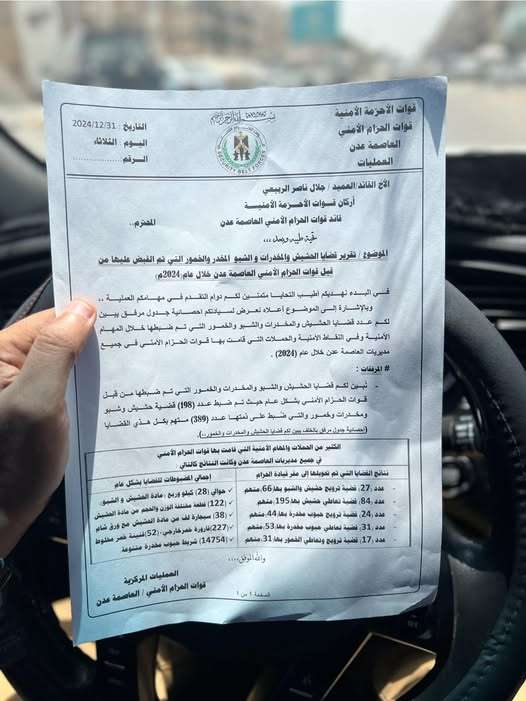 قوات الأحزمة الأمنية
قوات الحزام الأمني
العاصمة عدن
العمليات
SECURITY BELT FORCES
التاريخ: 2024/12/31
اليوم: الثلاثاء
الرقم: ..............
الأخ القائد/العميد/ جلال ناصر الربيعي
أركان قوات الأحزمة الأمنية
قائد قوات الحزام الأمني العاصمة عدن المحترم..
تحية طيبة وبعد،،،،
الموضوع/ تقرير قضايا الحشيش والمخدرات و الشبو المخدر والخمور التي تم القبض عليها من
قبل قوات الحزام الأمني العاصمة عدن خلال عام 2024م/
في البدء نهديكم أطيب التحايا متمنين لكم دوام التقدم في مهامكم العملية ..
وبالإشارة إلى الموضوع أعلاه نعرض لسيادتكم احصائية جدول مرفق يبين
لكم عدد قضايا الحشيش والمخدرات والشبو والخمور التي تم ضبطها خلال المهام
الأمنية وفي النقاط الأمنية والحملات التي قامت بها قوات الحزام الأمني في جميع
مديريات العاصمة عدن خلال عام (2024)
# المرفقات :
- نبين لكم قضايا الحشيش والشبو والمخدرات والخمور التي تم ضبطها من قبل
قوات الحزام الأمني بشكل عام حيث تم ضبط عدد (198) قضية حشيش وشبو
ومخدرات وخمور والتي ضبط على ذمتها عدد (389) متهم بكل هذه القضايا
(احصائية جدول مرفق بالخلف يبين لكم قضايا الحشيش والمخدرات والخمور..)
الكثير من الحملات والمهام الأمنية التي قامت بها قوات الحزام الأمني
في جميع مديريات العاصمة عدن وكانت النتائج كالتالي
نتائج القضايا التي تم تحويلها إلى مقر قيادة الحزام
- عدد 27, قضية ترويج حشيش والشبو بها,66,متهم
- عدد 84, قضية تعاطي حشيش بها,195,متهم
- عدد 24, قضية ترويج حبوب مخدرة بها,44,متهم
- عدد 31, قضية تعاطي حبوب مخدرة بها,53,متهم
- عدد 17, قضية ترويج وتعاطي الخمور بها,31,متهم
(إجمالي المضبوطات للقضايا بشكل عام)
حوالي (28) كيلو وربع , مادة الحشيش و الشبو.
(122) قطعة مختلفة الوزن والحجم من مادة الحشيش
(38) سيجارة لف من مادة الحشيش مع ورق شام
(227)قارورة خمر خارجي,(52)قنينة خمر مخلوط
(14754) شريط حبوب مخدرة متنوعة
والله الموفق ،،،،
العمليات المركزية
قوات الحزام الأمني / العاصمة عدن
الصفحة 1 من 1